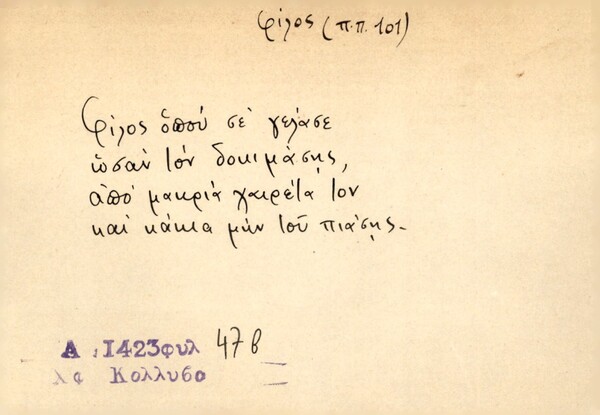 φίλος (π.π. 101)
Φίλος ὁποὺ σὲ γελάσε
ὡσὰν τὸν δοκιμάσῃς,
ἀπὸ μακριὰ χαιρέτα τον
καὶ κάκια μὴν τοῦ πιάσῃς.
Α :1423φυλ 47 β
Κολλυβο